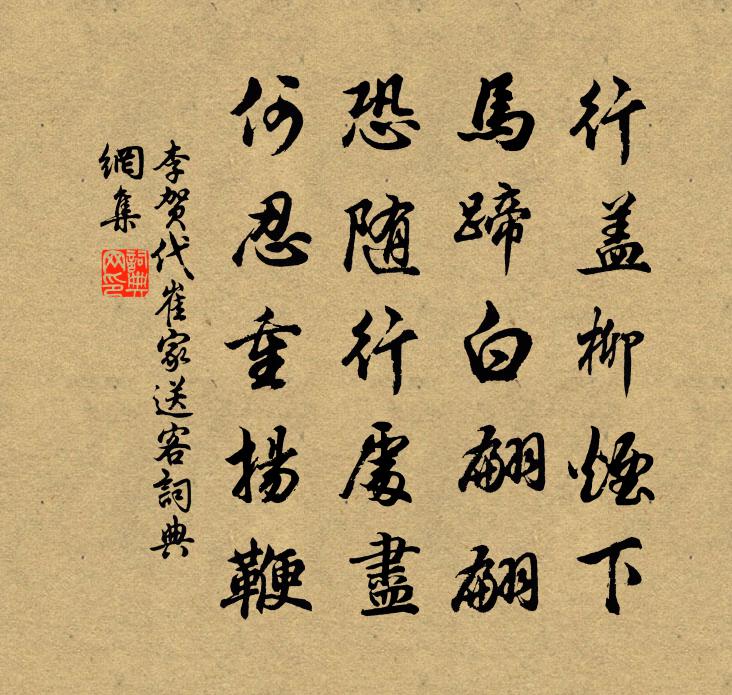 行盖柳煙下
馬蹄白翩翩
恐随行處盡
何忍重揚鞭
李贺代崔家送客詞典
網集
詞典
网印